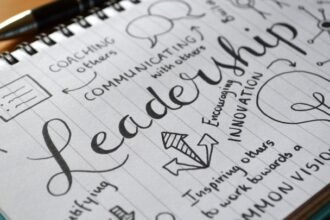 COACHING
others
COMMUNICATING
with others
Leadership
Encouraging
INNOVATION
Inspiring others
to work towards a
COMMON VISION